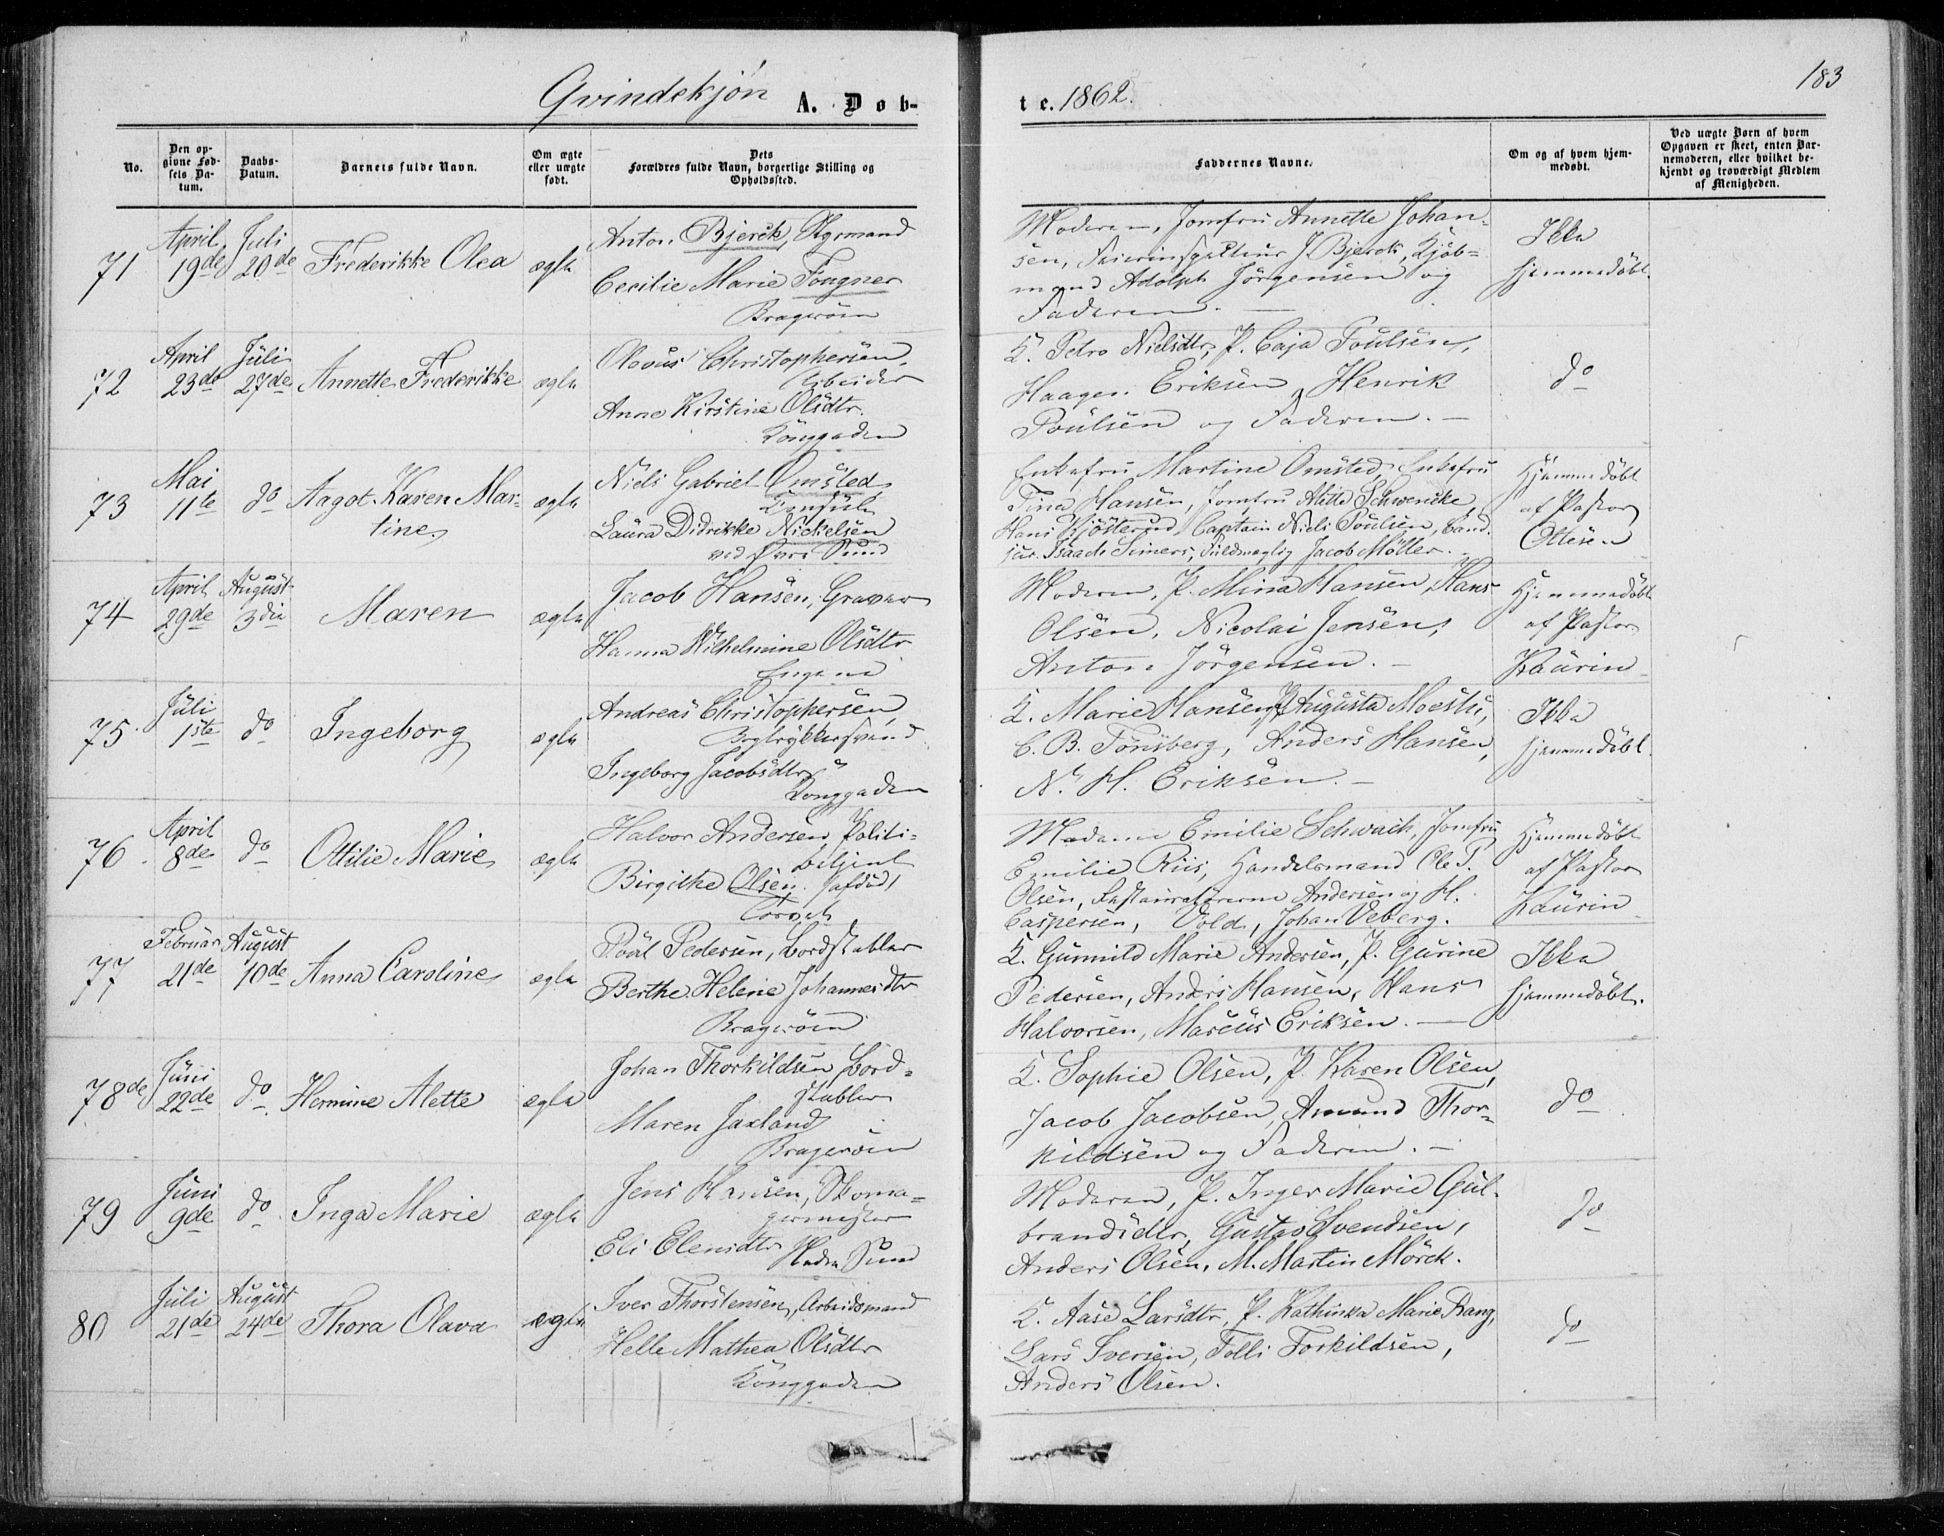 183
Qvindekjøn A. Døb-
te. 1862.
No.
Den op-
givne Fød-
sels Da-
tum.
Daabs-
Datum.
Barnets fulde Navn.
Om ægte
eller uægte
født.
Dets
Forældres fulde Navn, borgerlige Stilling og
Opholdssted.
Faddernes Navne.
Om og af hvem hjem-
medøbt.
Ved uægte Børn af hvem
Opgaven er skeet, enten Bar-
nemoderen, eller hvilket be-
kjendt og troværdigt Medlem
af Menigheden.
71
April
19de
Juli
20de
Frederikke Olea
ægte
Anton Bjerck,
Cecilie Marie Fougner
Bragerøen
Moderen, Jomfru Annette Johan-
sen, J. Bjerck, Kjøb-
mand Adolph Jørgensen og
Faderen. —
Ikke
hjemmedøbt.
72
April
23de
Juli
27de
Annette Frederikke
ægte
Olavus Christophersen,
Arbeider
Anne Kirstine Olsdtr.
Konggaden
K. Petro Nielsdtr, P. Caja Poulsen,
Haagen Eriksen, Henrik
Poulsen og Faderen. —
do
73
Mai
11te
do
Aagot Karen Mar-
tine
ægte
Niels Gabriel Omsted
Consul
Laura Didrikke Nickelsen
ved Øvre Sund
Enkefru Martine Omsted, Enkefru
Tina Hansen, Jomfru Alette Schwencke,
Hans Kjøsterud, Captain Niels Poulsen, Cand.
jur. Isaach Simers, Fuldmægtig Jacob Møller. —
Hjemmedøbt
af Pastor
Ottesen
74
April
29de
August
3die
Maren
ægte
Jacob Hansen, Graver
Hanna Wilhelmine Olsdtr
Engene
Moderen, P. Mina Hansen, Hans
Olsen, Nicolai Jensen,
Anton Jørgensen. —
Hjemmedøbt
af Pastor
Kaurin
75
Juli
1ste
do
Ingeborg
ægte
Andreas Christophersen,
Bogtrykkersvend
Ingeborg Jacobsdtr
Konggaden
K. Marie Hansen, P. Augusta Moestu,
C. B. Tønsberg, Anders Hansen,
N. H. Eriksen. —
Ikke
hjemmedøbt.
76
April
8de
do
Ottilie Marie
ægte
Halvor Andersen, Politi-
betjent
Birgithe Olsen
Torvet
Madame Emilie Schwach, Jomfru
Emilie Riis, Handelsmand Ole P.
Olsen, Restauratørerne Andersen og H.
Caspersen, Vold, Johan Veberg.
Hjemmedøbt
af Pastor
Kaurin
77
Februar
21de
August
10de
Anna Caroline
ægte
Poul Pedersen, Bordstabler
Berthe Helene Johannesdtr
Bragerøen
K. Gunnild Marie Andersen, P. Gurine
Pedersen, Anders Hansen, Hans
Halvorsen, Marcus Eriksen. —
Ikke
hjemmedøbt.
78de
Juni
22de
do
Hermine Alette
ægte
Johan Thorkildsen, Bord-
stabler
Maren Jaxland
Bragerøen
K. Sophie Olsen, P. Karen Olsen,
Jacob Jacobsen, Amund Thor-
kildsen og Faderen. —
do
79
Juni
9de
do
Inga Marie
ægte
Jens Hansen, Skoma-
germester
Eli Elensdtr
Nedre Sund
Moderen, P. Inger Marie Gul-
brandsdtr, Gustav Svendsen,
Anders Olsen, M. Martin Mørck.
do
80
Juli
21de
August
24de
Thora Olava
ægte
Iver Thorstensen, Arbeidsmand
Helle Mathea Olsdtr
Konggaden
K. Aase Larsdtr, P. Kathinka Marie Bang,
Lars Iversen, Tolli Torkildsen,
Anders Olsen.
do